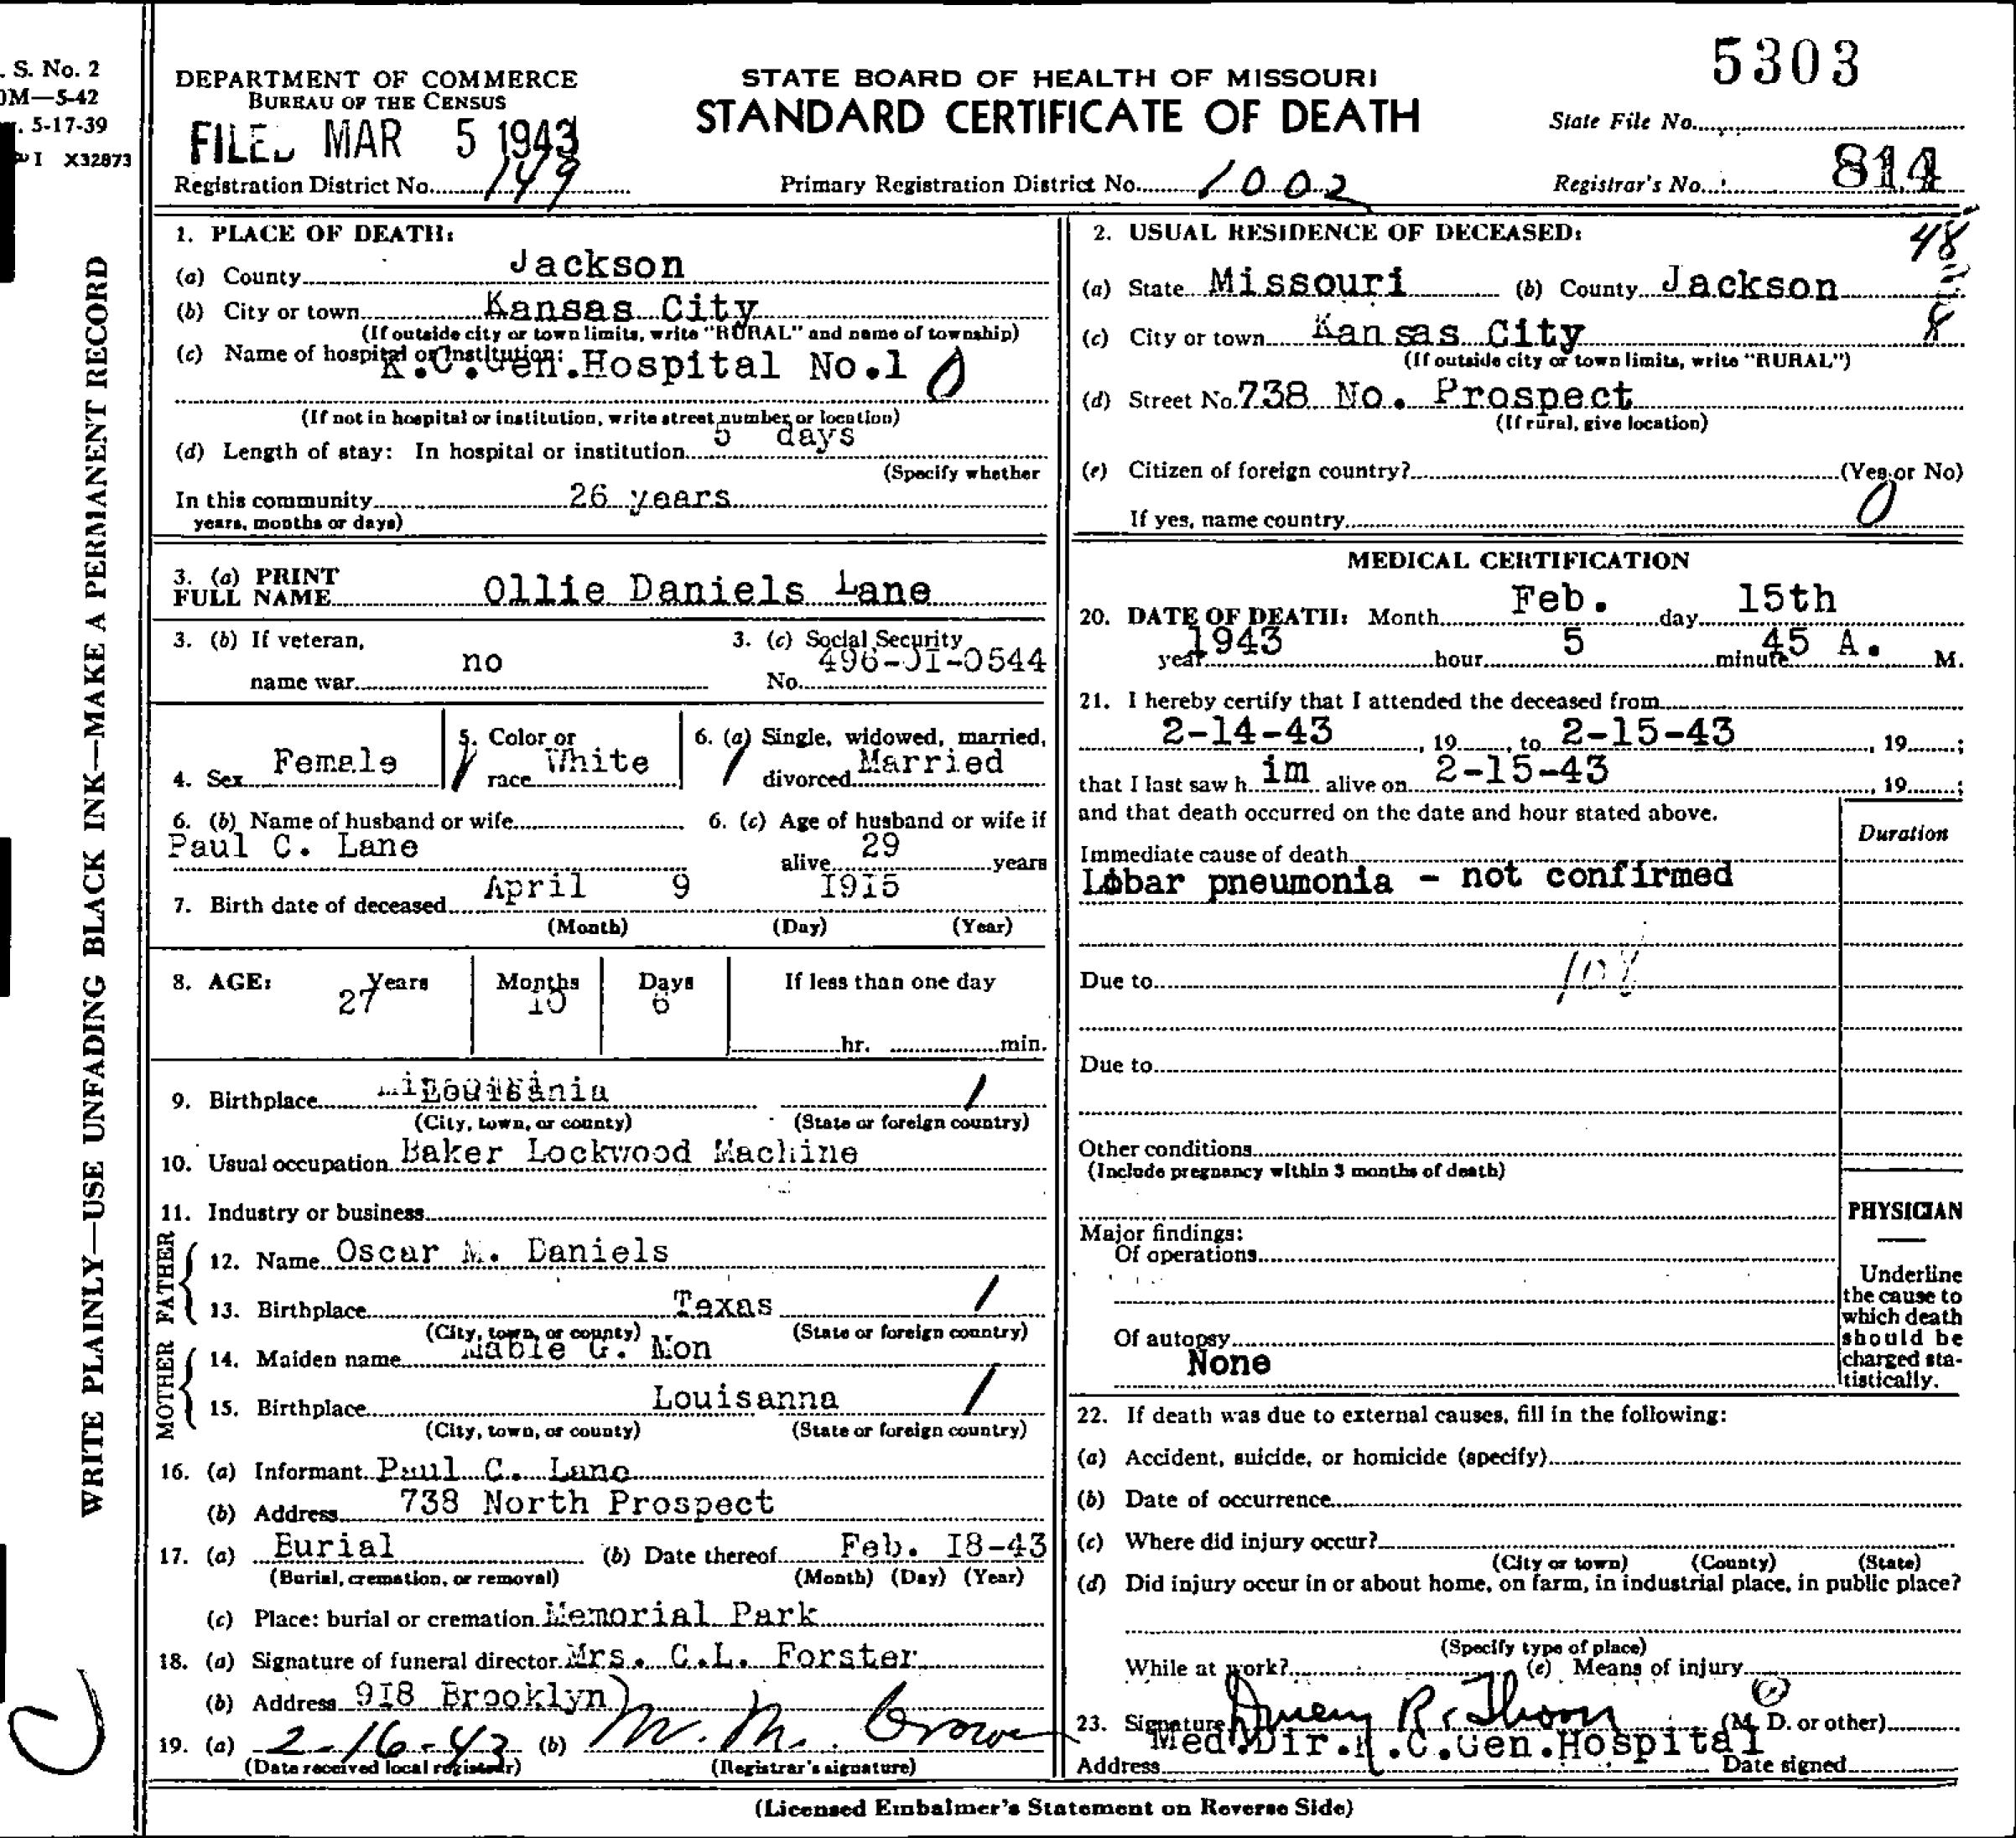 . S. No. 2
0M—5-42
. 5-17-39
I X32873
WRITE PLAINLY—USE UNFADING BLACK INK—MAKE A PERMANENT RECORD
DEPARTMENT OF COMMERCE
BUREAU OF THE CENSUS
FILED MAR 5 1943
Registration District No. 149
STATE BOARD OF HEALTH OF MISSOURI
STANDARD CERTIFICATE OF DEATH
Primary Registration District No. 1002
5303
State File No.
Registrar's No. 814
1. PLACE OF DEATH:
(a) County Jackson
(b) City or town Kansas City
(If outside city or town limits, write "RURAL" and name of township)
(c) Name of hospital or institution: K.C.Gen.Hospital No.1 0
(If not in hospital or institution, write street number or location)
(d) Length of stay: In hospital or institution 5 days
(Specify whether
In this community 26 years
years, months or days)
3. (a) PRINT
FULL NAME Ollie Daniels Lane
3. (b) If veteran,
name war no
3. (c) Social Security
No. 496-0I-0544
4. Sex Female
5. Color or
race White
6. (a) Single, widowed, married,
divorced Married
6. (b) Name of husband or wife
Paul C. Lane
6. (c) Age of husband or wife if
alive 29 years
7. Birth date of deceased April 9 I9I5
(Month) (Day) (Year)
8. AGE: Years Months Days If less than one day
27 10 6
hr. min.
9. Birthplace Louisiania /
(City, town, or county) (State or foreign country)
10. Usual occupation Baker Lockwood Machine
11. Industry or business
FATHER
12. Name Oscar M. Daniels
13. Birthplace Texas /
(City, town, or county) (State or foreign country)
MOTHER
14. Maiden name Mable G. Mon
15. Birthplace Louisanna /
(City, town, or county) (State or foreign country)
16. (a) Informant Paul C. Lane
(b) Address 738 North Prospect
17. (a) Burial (b) Date thereof Feb. I8-43
(Burial, cremation, or removal) (Month) (Day) (Year)
(c) Place: burial or cremation Memorial Park
18. (a) Signature of funeral director Mrs. C.L. Forster
(b) Address 9I8 Brooklyn
19. (a) 2-16-43 (b) M. M. Crowe
(Date received local registrar) (Registrar's signature)
2. USUAL RESIDENCE OF DECEASED:
48
(a) State Missouri (b) County Jackson
(c) City or town Kansas City 8
(If outside city or town limits, write "RURAL")
(d) Street No. 738 No. Prospect
(If rural, give location)
(e) Citizen of foreign country? (Yes or No)
If yes, name country 0
MEDICAL CERTIFICATION
20. DATE OF DEATH: Month Feb. day 15th
year 1943 hour 5 minute 45 A. M.
21. I hereby certify that I attended the deceased from
2-14-43, 19 , to 2-15-43, 19 ;
that I last saw h im alive on 2-15-43, 19 ;
and that death occurred on the date and hour stated above.
Duration
Immediate cause of death
Lobar pneumonia - not confirmed
Due to 108
Due to
Other conditions
(Include pregnancy within 3 months of death)
Major findings:
Of operations
Of autopsy
None
PHYSICIAN
Underline
the cause to
which death
should be
charged sta-
tistically.
22. If death was due to external causes, fill in the following:
(a) Accident, suicide, or homicide (specify)
(b) Date of occurrence
(c) Where did injury occur?
(City or town) (County) (State)
(d) Did injury occur in or about home, on farm, in industrial place, in public place?
(Specify type of place)
While at work? (e) Means of injury
23. Signature R. Thom (M. D. or other)
Med.Dir.K.C.Gen.Hospital
Address Date signed
(Licensed Embalmer's Statement on Reverse Side)